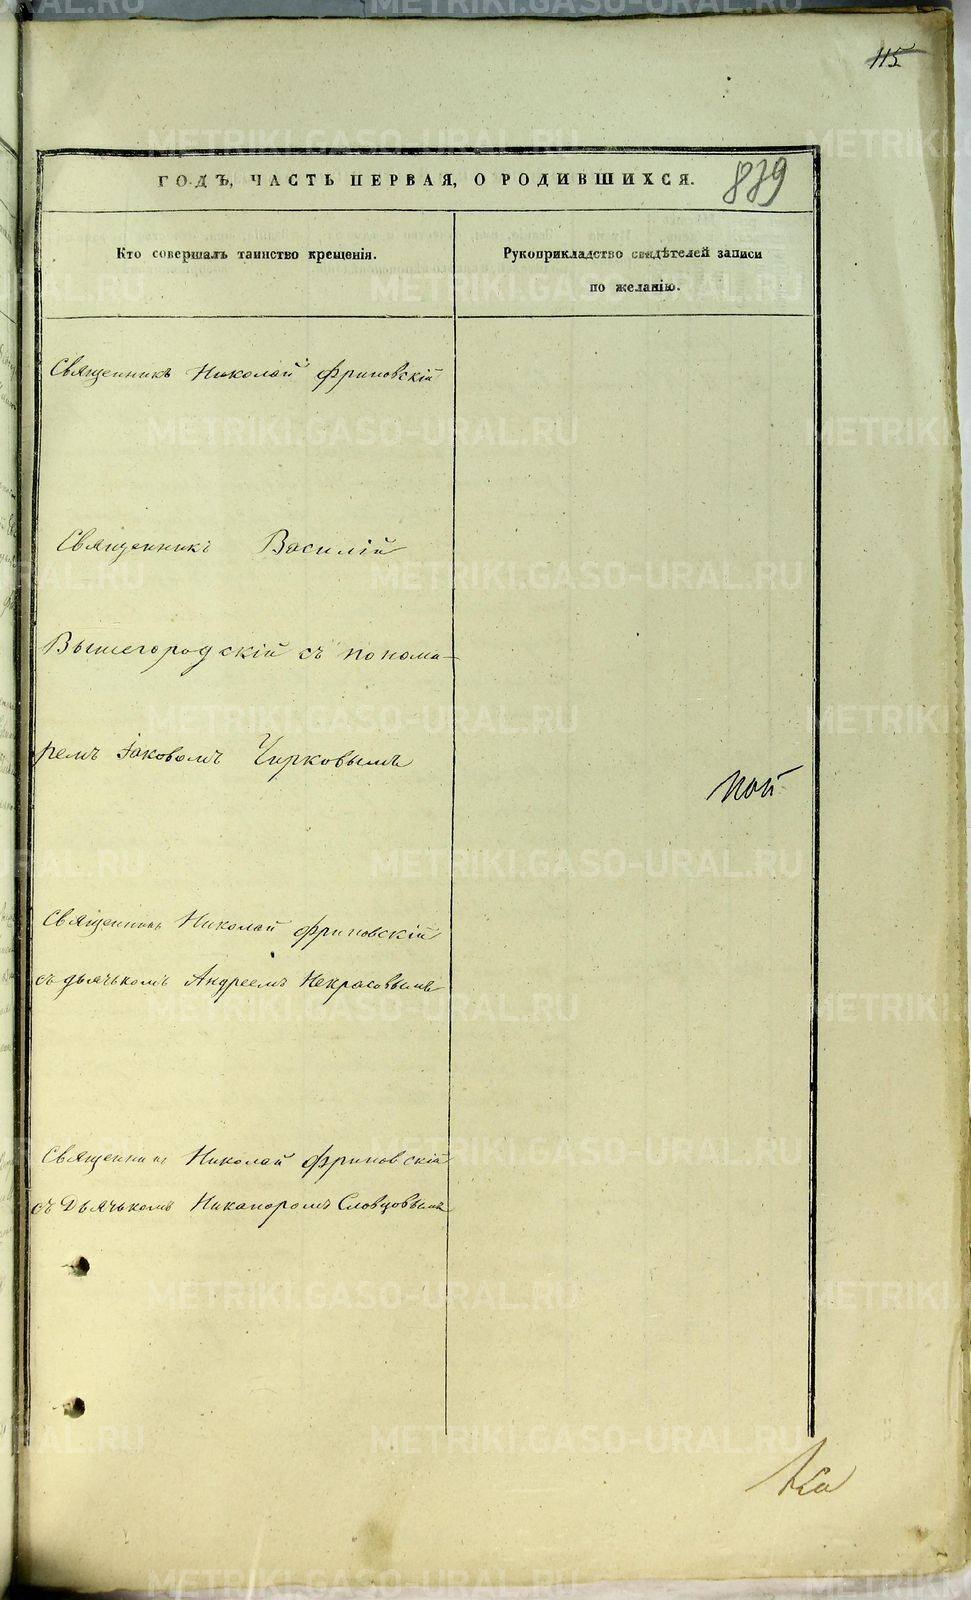 115
ГОДЪ, ЧАСТЬ ПЕРВАЯ, О РОДИВШИХСЯ.
839
Кто совершалъ таинство крещенія.
Рукоприкладство свидѣтелей записи
по желанію.
Священникъ Николай Фриновскій
Священникъ Василій
Вышегородскій съ понома-
ремъ Іаковомъ Чирковымъ
ной
Священникъ Николай Фриновскій
съ дьячькомъ Андреемъ Некрасовымъ
Священникъ Николай Фриновскій
съ Дьячькомъ Никаноромъ Словцовымъ
METRIKI.GASO-URAL.RU